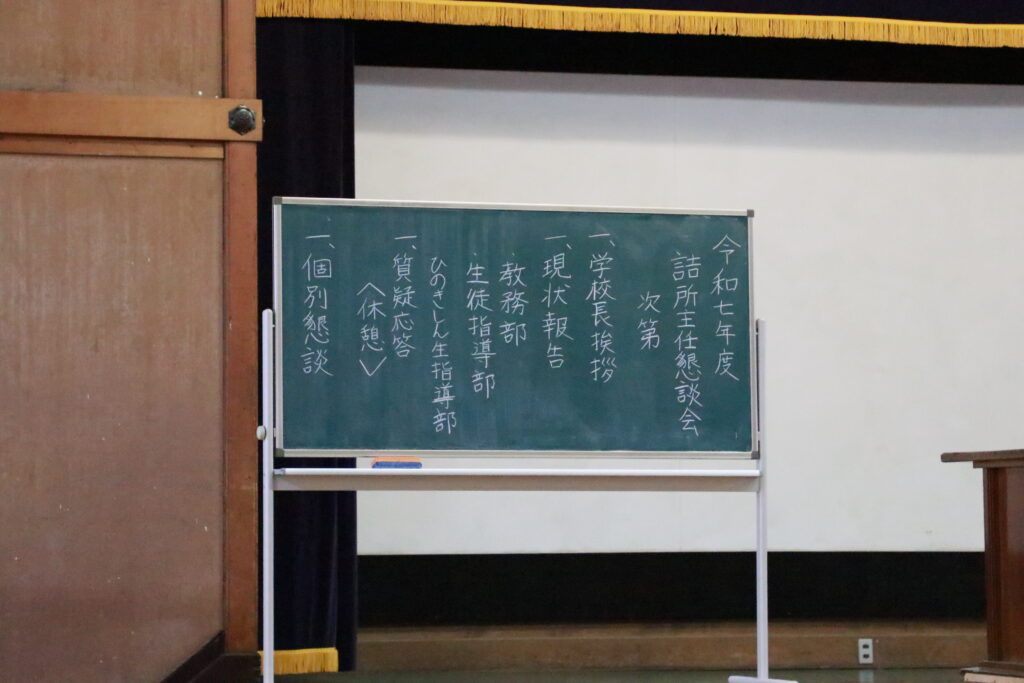 令和七年度
詰所主任懇談会
次第
一、学校長挨拶
一、現状報告
教務部
生徒指導部
ひのきしん生指導部
一、質疑応答
〈休憩〉
一、個別懇談